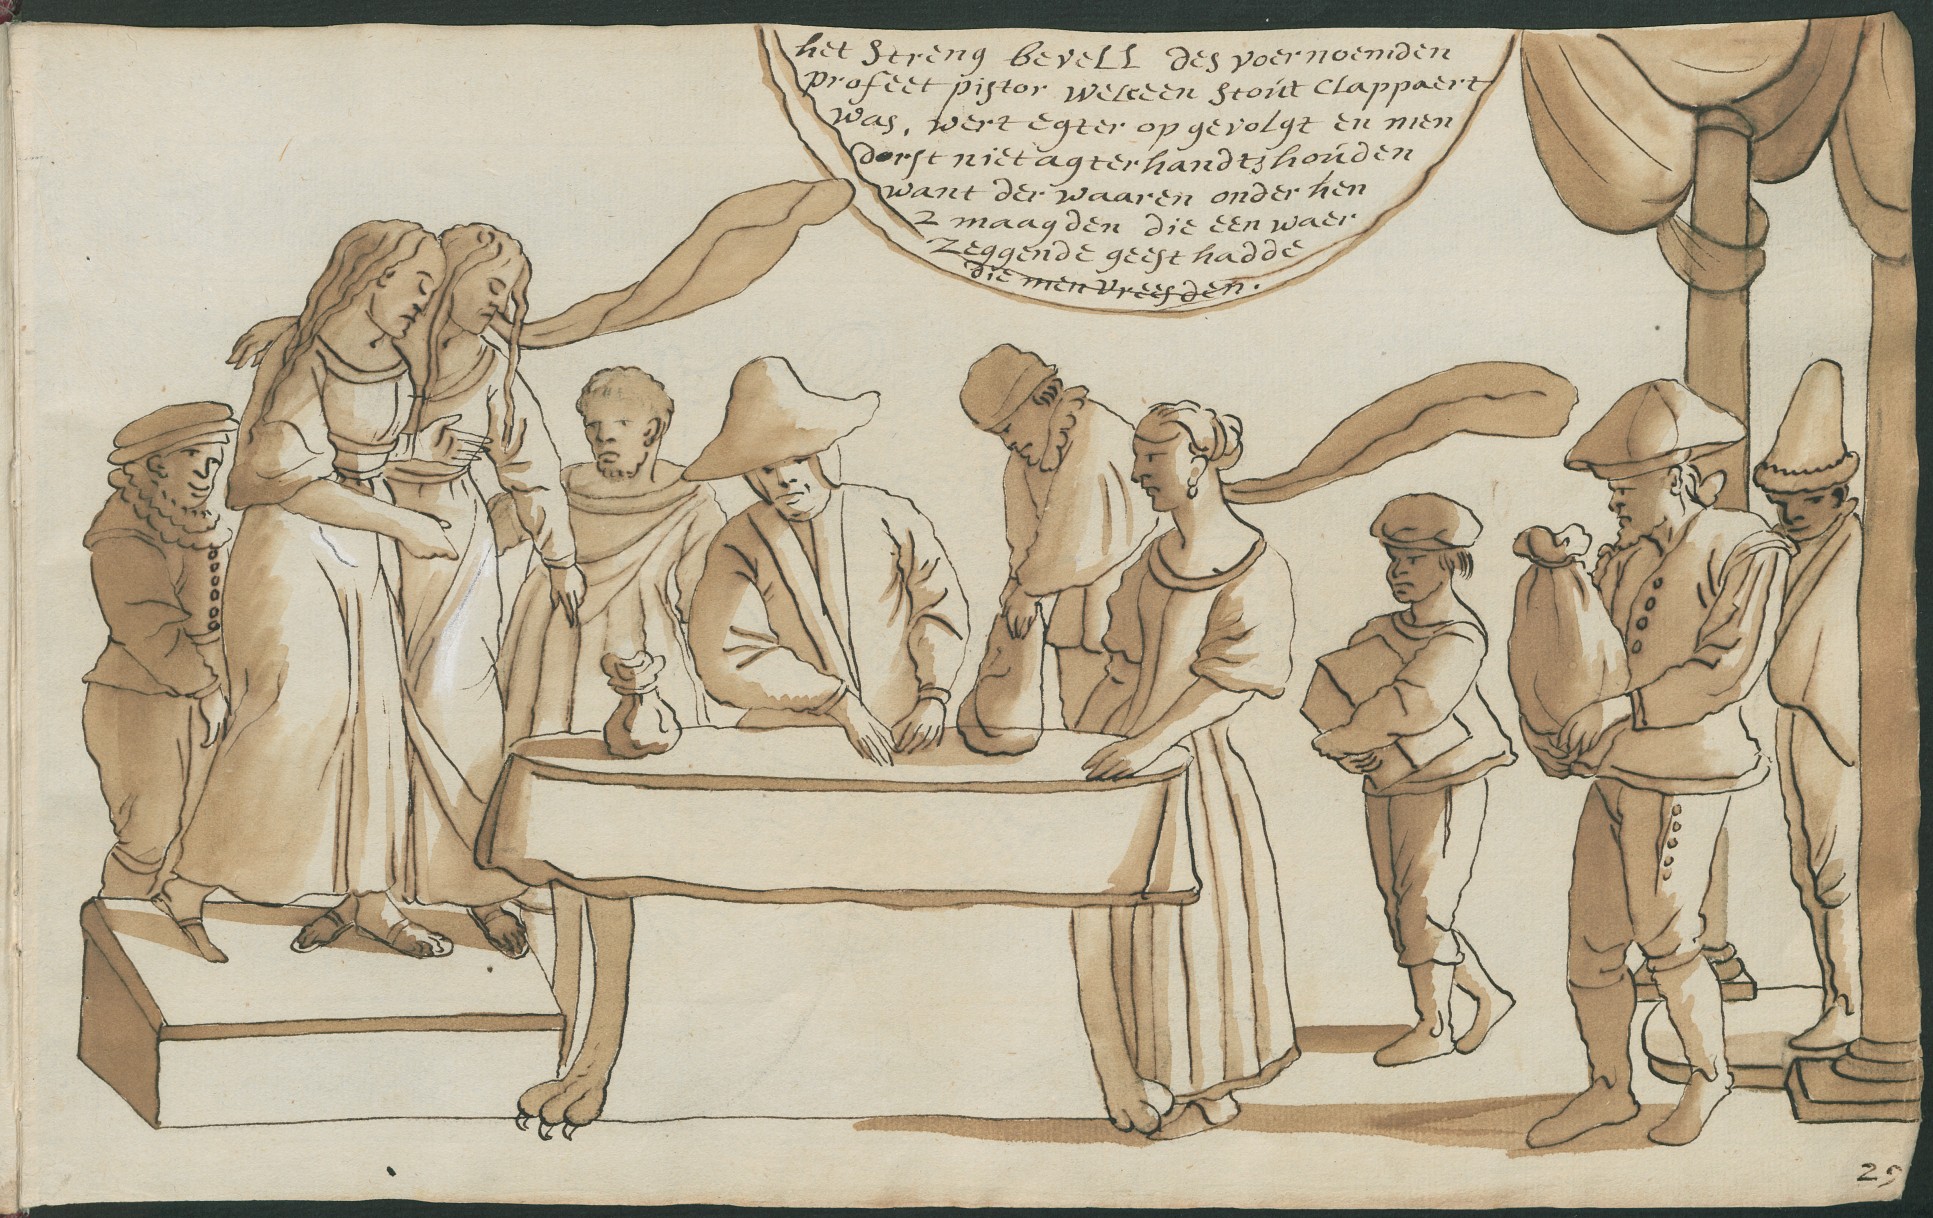 het Streng bevell des voernoemden
profeet pistor welceen stoút Clappaert
was, wert egter op gevolgt en men
dorst niet agterhandts hoúden
want der waaren onder hen
2 maagden die een waer
Zeggende geest hadde
die men vreesden.
29